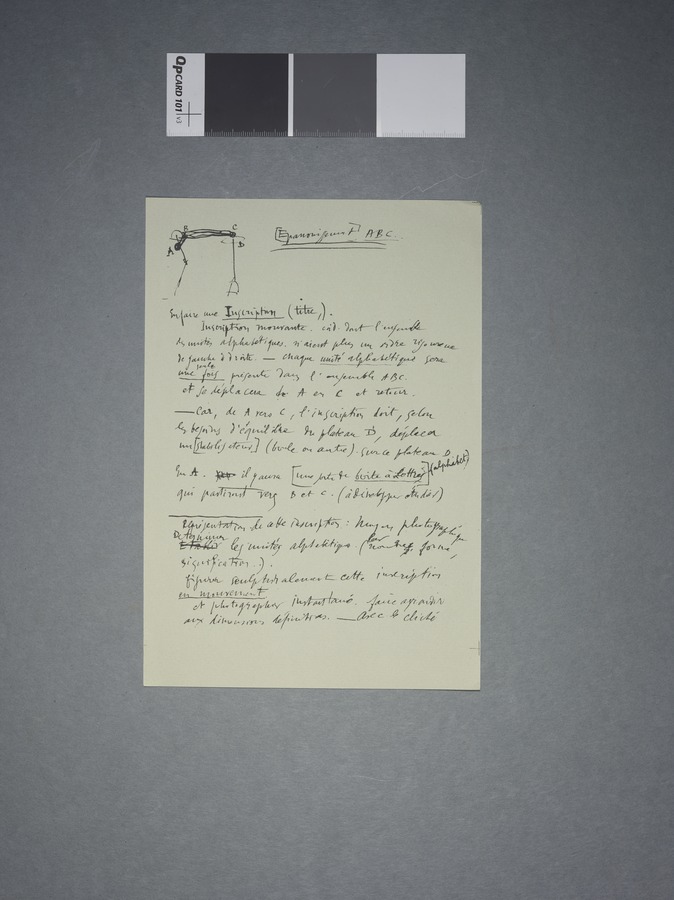 QPCARD 101 v3
A B C D
[Epanouissement] ABC.
En faire une Inscription (titre,).
Inscription mouvante. càd. dont l'ensemble
des unités alphabétiques n'aient plus un ordre rigoureux
de gauche à droite. — chaque unité alphabétique sera
une seule fois présente dans l'ensemble ABC.
et se déplacera de A en C et retour.
— Car, de A vers C, l'inscription doit, selon
les besoins d'équilibre du plateau D, déplacer
un [stabilisateur] (boule ou autre) sur ce plateau D.
En A. il y aura [une sorte de boîte à lettres] (alphabet)
qui partiront vers B et C. (à développer)
Représentation de cette inscription: moyens photographique
Déterminer les unités alphabétiques (leur nombre, forme,
signification.).
figurer sculpturalement cette inscription
en mouvement
et photographier instantané. faire agrandir
aux dimensions définitives. — Avec le cliché